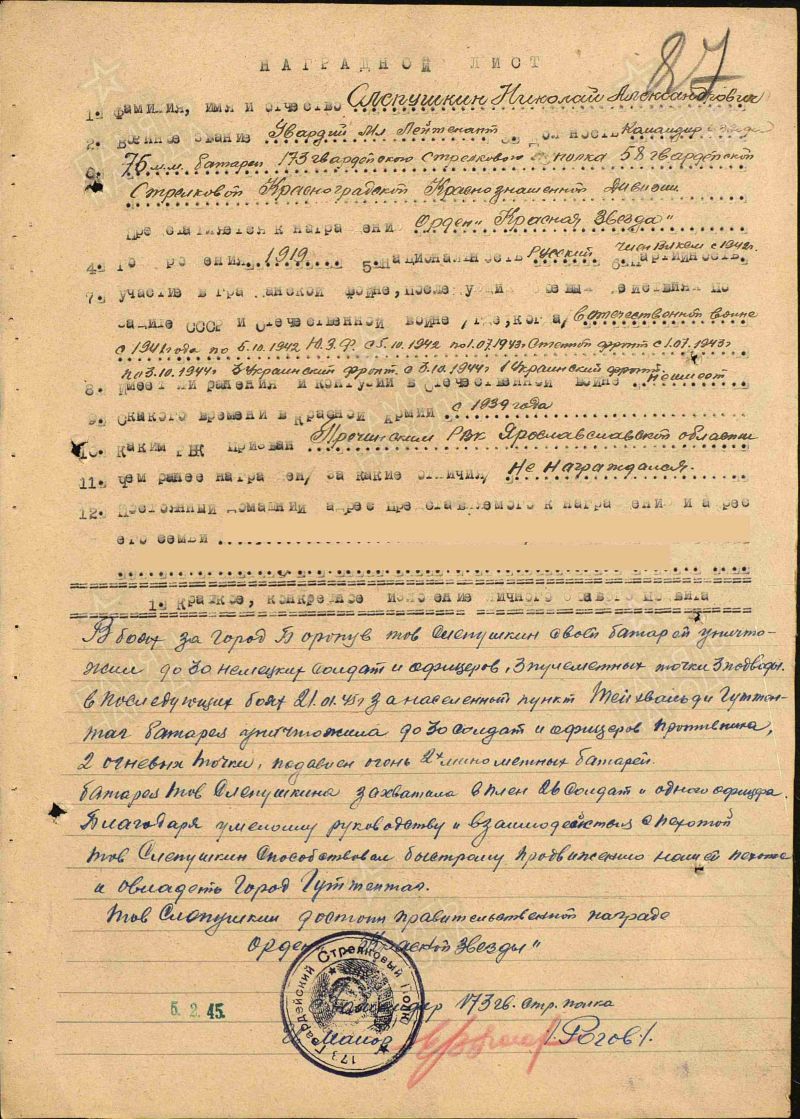 87
НАГРАДНОЙ ЛИСТ
1. Фамилия, имя и отчество Слепушкин Николай Александрович
2. Военное звание Гвардии Мл Лейтенант 3. Должность Командир взвода
76 м.м. батареи 173 гвардейского Стрелкового полка 58 гвардейской
Стрелковой Красноградской Краснознаменной дивизии
Представляется к награждению Орден „Красная Звезда"
4. Год рождения 1919 5. Национальность Русский 6. Партийность член ВЛКСМ с 1942г.
7. Участие в гражданской войне, последующих боевых действиях по
защите СССР и Отечественной войне /где, когда/ в отечественной войне
с 1941 года по 5.10.1942 Ю.З.Ф. с 5.10.1942 по 1.07.1943г Степной фронт с 1.07.1943г
по 3.10.1944г 3 Украинский фронт. с 3.10.1944г 1 Украинский фронт.
8. Имеет ли ранения и контузии в Отечественной войне не имеет
9. С какого времени в Красной Армии с 1939 года
10. Каким РВК призван РВК Ярославславской области
11. Чем ранее награжден /за какие отличия/ Не награждался.
12. Постоянный домашний адрес представляемого к награждению и адрес
его семьи
1. Краткое, конкретное изложение личного боевого подвига
В боях за город тов Слепушкин своей батареей уничто-
жил до 30 немецких солдат и офицеров, 3 пулеметных точки 3 подводы.
в последующих боях 21.01.45г за населенный пункт и Гуттен-
таг батарея уничтожила до 30 солдат и офицеров противника,
2 огневых точки, подавлен огонь 2х минометных батарей.
батарея тов Слепушкина захватила в плен 26 солдат и одного офицера.
Благодаря умелому руководству и взаимодействия с пехотой
тов Слепушкин способствовал быстрому продвижению нашей пехоте
и овладеть Город Гуттентаг.
тов Слепушкин достоин правительственной награде
Орден „Красной Звезды"
173 Гвардейский Стрелковый Полк
5.2.45.
Командир 173 гв. стр. полка
Майор /Рогов/.